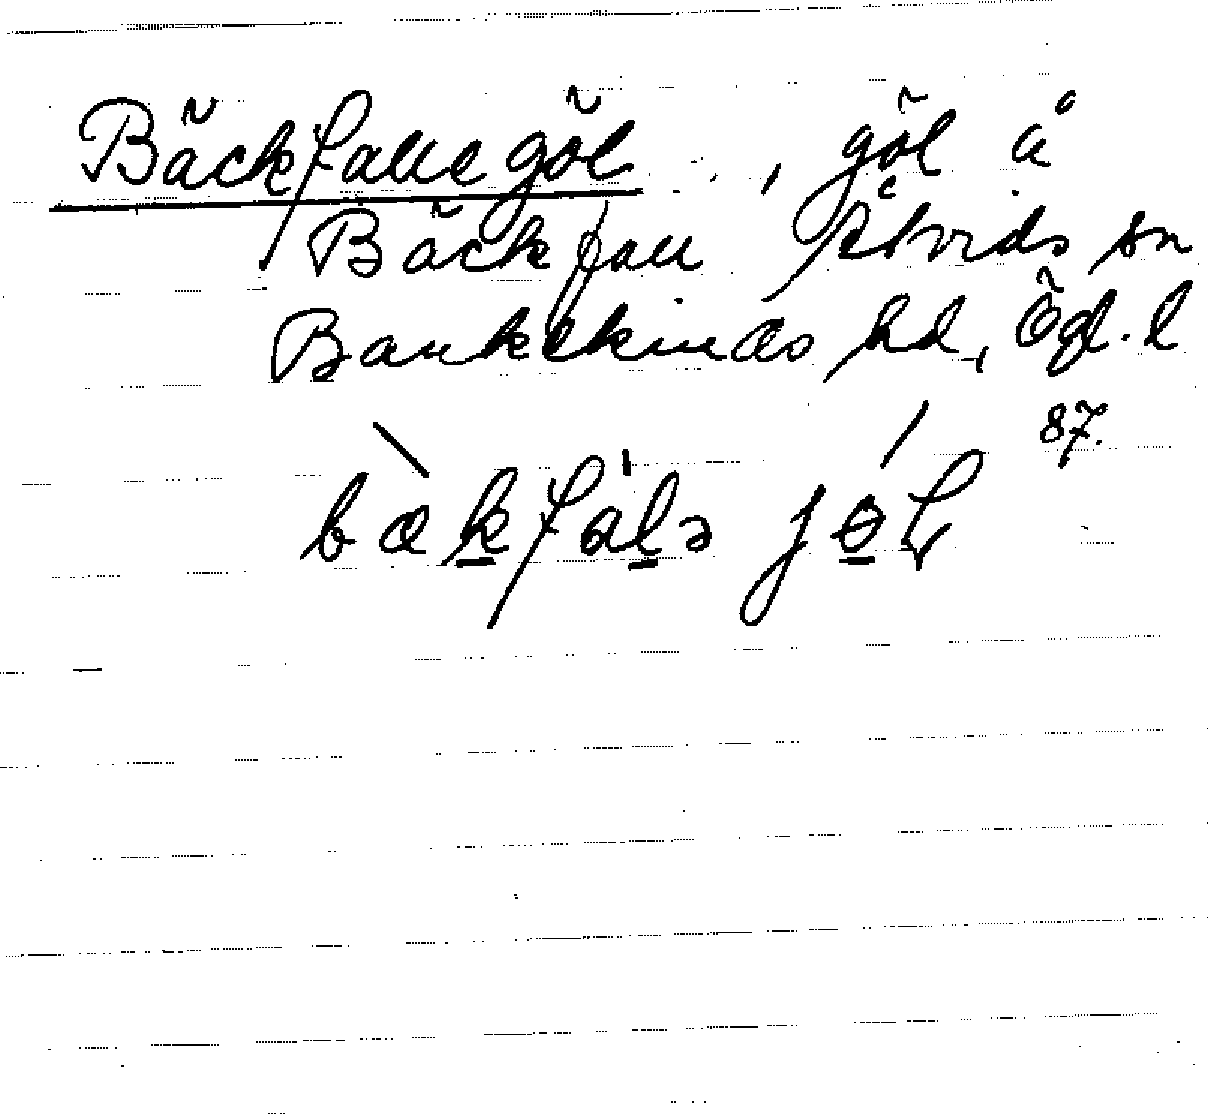 Bäckfallegöl, göl å
Bäckfall Åtvids sn
Bankekinds hd, Ögl. l
87.
bækfalə jøl